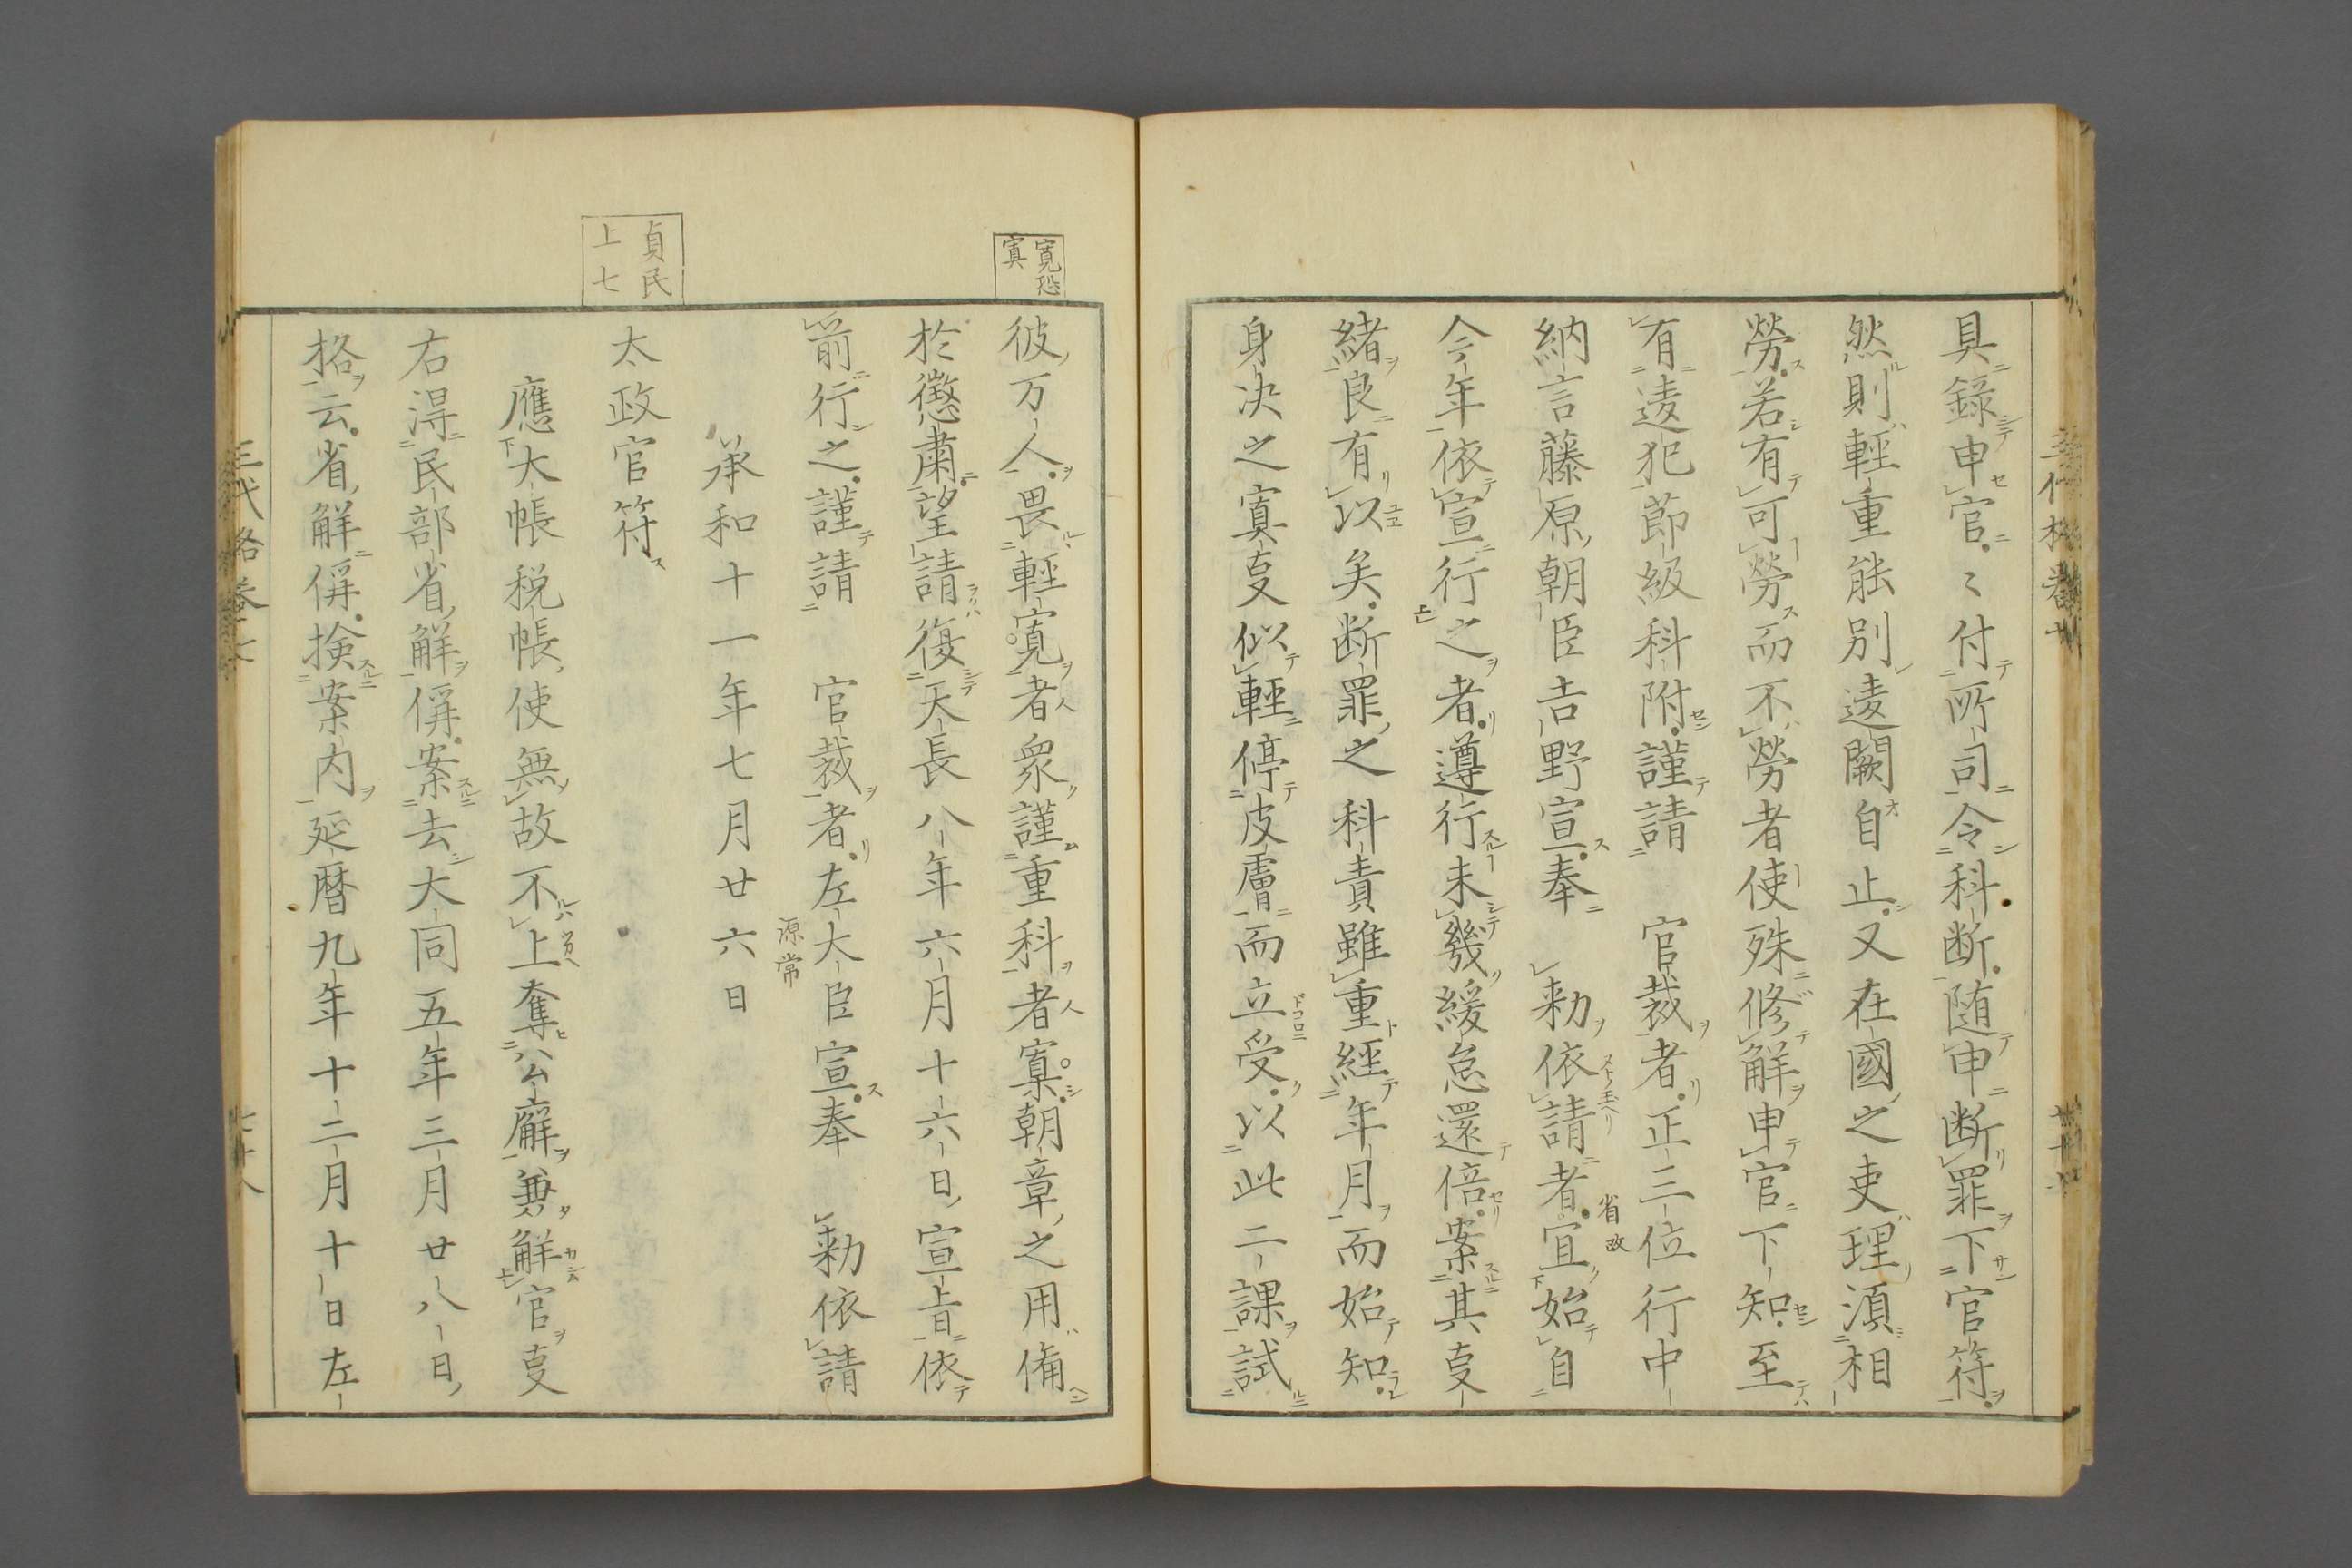 具錄申官〻付所司令科断随申断罪下官符
然則輕重能別逺闕自止又在國之吏理湏相
勞若有可勞而不勞者使殊修解申官下知至
有逺犯莭級科附謹請　官裁者正三位行中
納言藤原朝臣吉野宣奉　勅依請者宜始自
省改
今年依宣行之者遵行未幾緩怠還倍案其㕝
緒良有以矣断罪之科責雖重經年月而始知
身决之寘㕝似輕停皮膚而立受以此二課試
寛恐
寘
彼万人畏輕寛者衆謹重科者寡朝章之用俻
於懲肅望請復天長八年六月十六日宣旨依
前行之謹請　官裁者左大臣宣奉　勅依請
源常
承和十一年七月廿六日
貞民
上七
太政官符
應大帳税帳使無故不上奪公廨兼解官㕝
右得民部省解偁案去大同五年三月廿八日
格云省解偁検案内延暦九年十二月十日左
三代格巻七